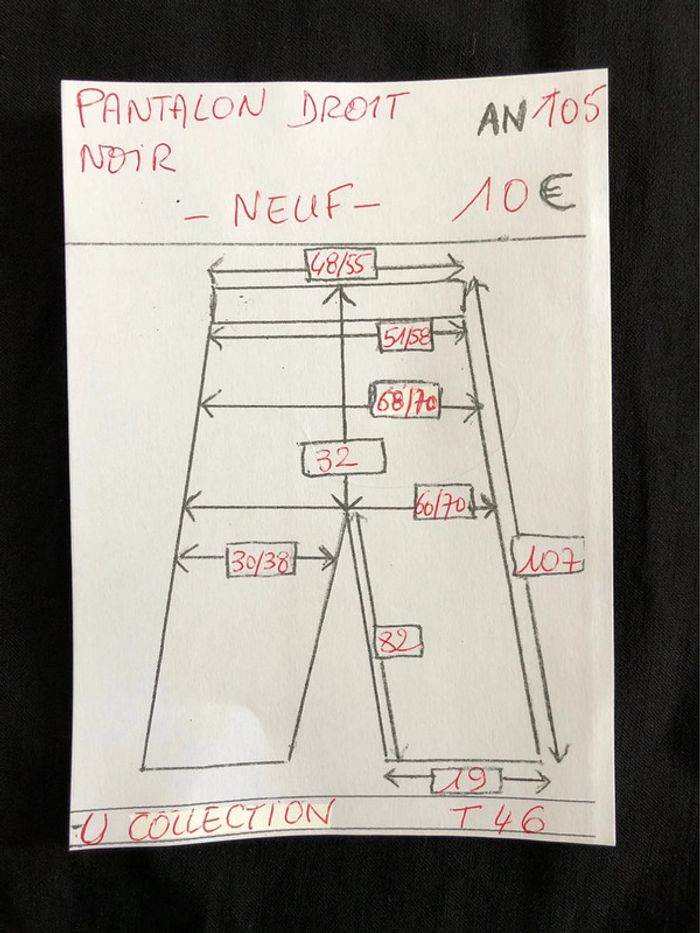 PANTALON DROIT AN 105
NOIR
- NEUF - 10 €
48/55
51/58
68/70
32
60/70
30/38
107
82
19
U COLLECTION T 46